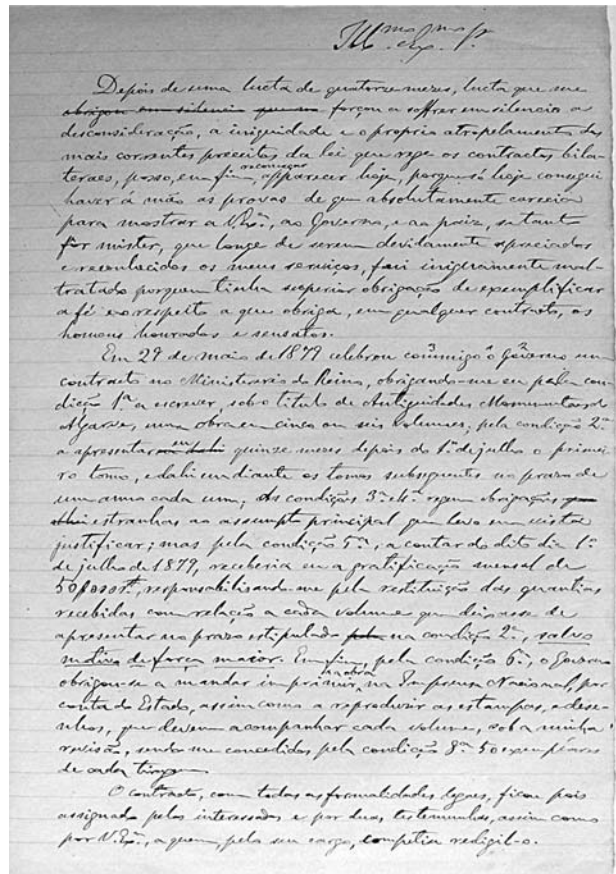 Ill.mo Ex.mo Sr.
Depois de uma lucta de quatorze mezes, lucta que me
obrigou em silencio que me forçou a soffrer em silencio a
desconsideração, a iniquidade e o proprio atropelamento dos
mais correntes preceitos da lei que rege os contractos bila-
teraes, posso, em fim, recomeçar apparecer hoje, porque só hoje consegui
haver á mão as provas de que absolutamente carecia
para mostrar a V. Ex.ª, ao Governo, e ao paiz, se tanto
fôr mister, que longe de serem devidamente apreciados
e reconhecidos os meus serviços, fui iniquamente mal-
tratado por quem tinha superior obrigação de exemplificar
a fé e o respeito a que obriga, em qualquer contracto, os
homens honrados e sensatos.
Em 29 de maio de 1879 celebrou commigo o governo um
contracto no Ministerio do Reino, obrigando-me eu pela con-
dição 1.ª a escrever, sob o titulo de Antiguidades Monumentaes do
Algarve, uma obra em cinco ou seis volumes; pela condição 2.ª
a apresentar quinze mezes depois do 1.º de julho o primei-
ro tomo, e dahi em diante os tomos subsequentes no prazo de
um anno cada um; As condições 3.ª e 4.ª regem obrigações
estranhas ao assumpto principal que levo em vista
justificar; mas pela condição 5.ª, a contar do dito dia 1.º
de julho de 1879, receberia eu a gratificação mensal de
responsabilisando-me pela restituição das quantias
recebidas com relação a cada volume que deixasse de
apresentar no prazo estipulado pela na condição 2.ª, salvo
motivo de força maior. Em fim, pela condição 6.ª, o Governo
obrigou-se a mandar imprimir a obra na Imprensa Nacional, por
conta do Estado, assim como a reproduzir as estampas, e dese-
nhos, que devem acompanhar cada volume, sob a minha
revisão, sendo-me concedidos pela condição 8.ª 50 exemplares
de cada tiragem.
O contracto, com todas as formalidades legaes, ficou pois
assignado pelos interessados e por duas testemunhas, assim como
por V. Ex.ª, a quem, pelo seu cargo, competia redigil-o.